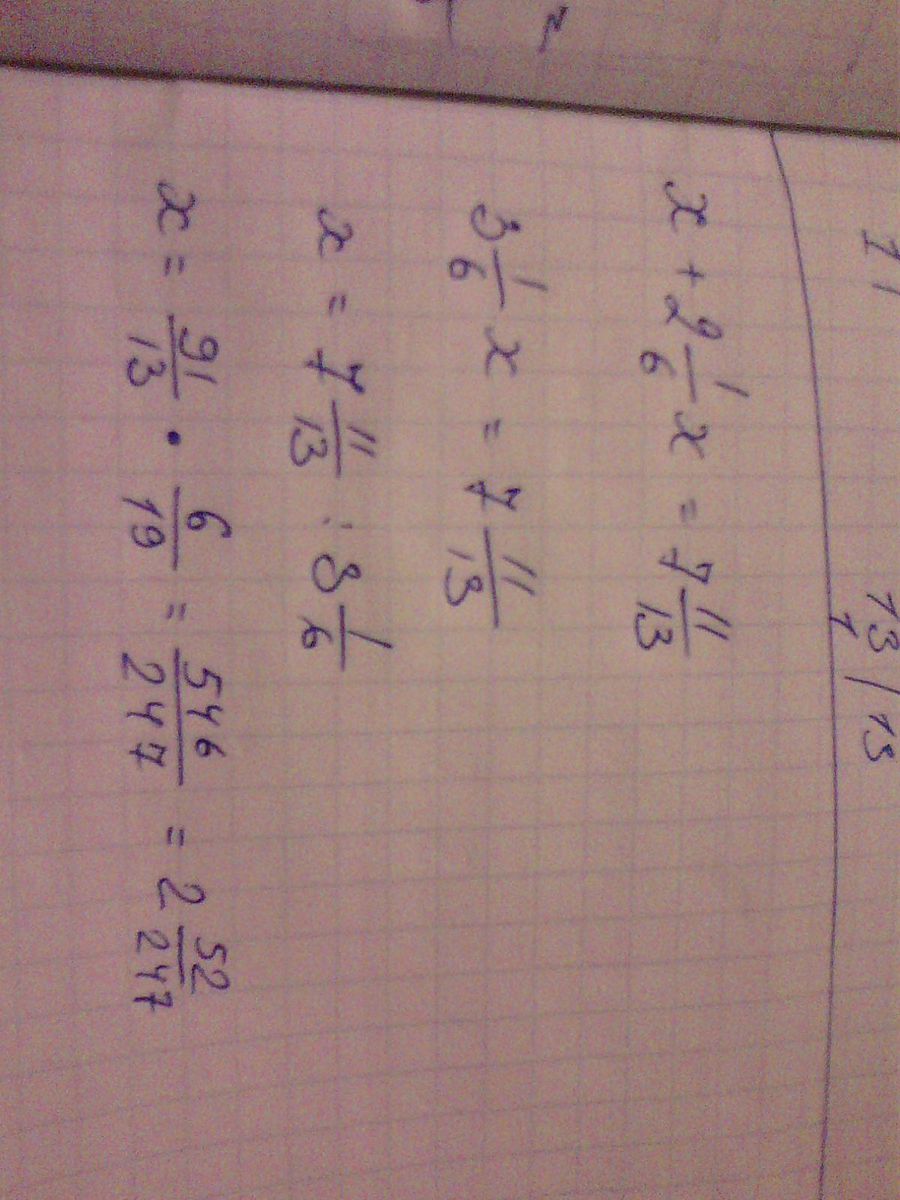 13/13
1
x + 2 1/6 x = 7 11/13
3 1/6 x = 7 11/13
x = 7 11/13 : 3 1/6
x = 91/13 · 6/19 = 546/247 = 2 52/247